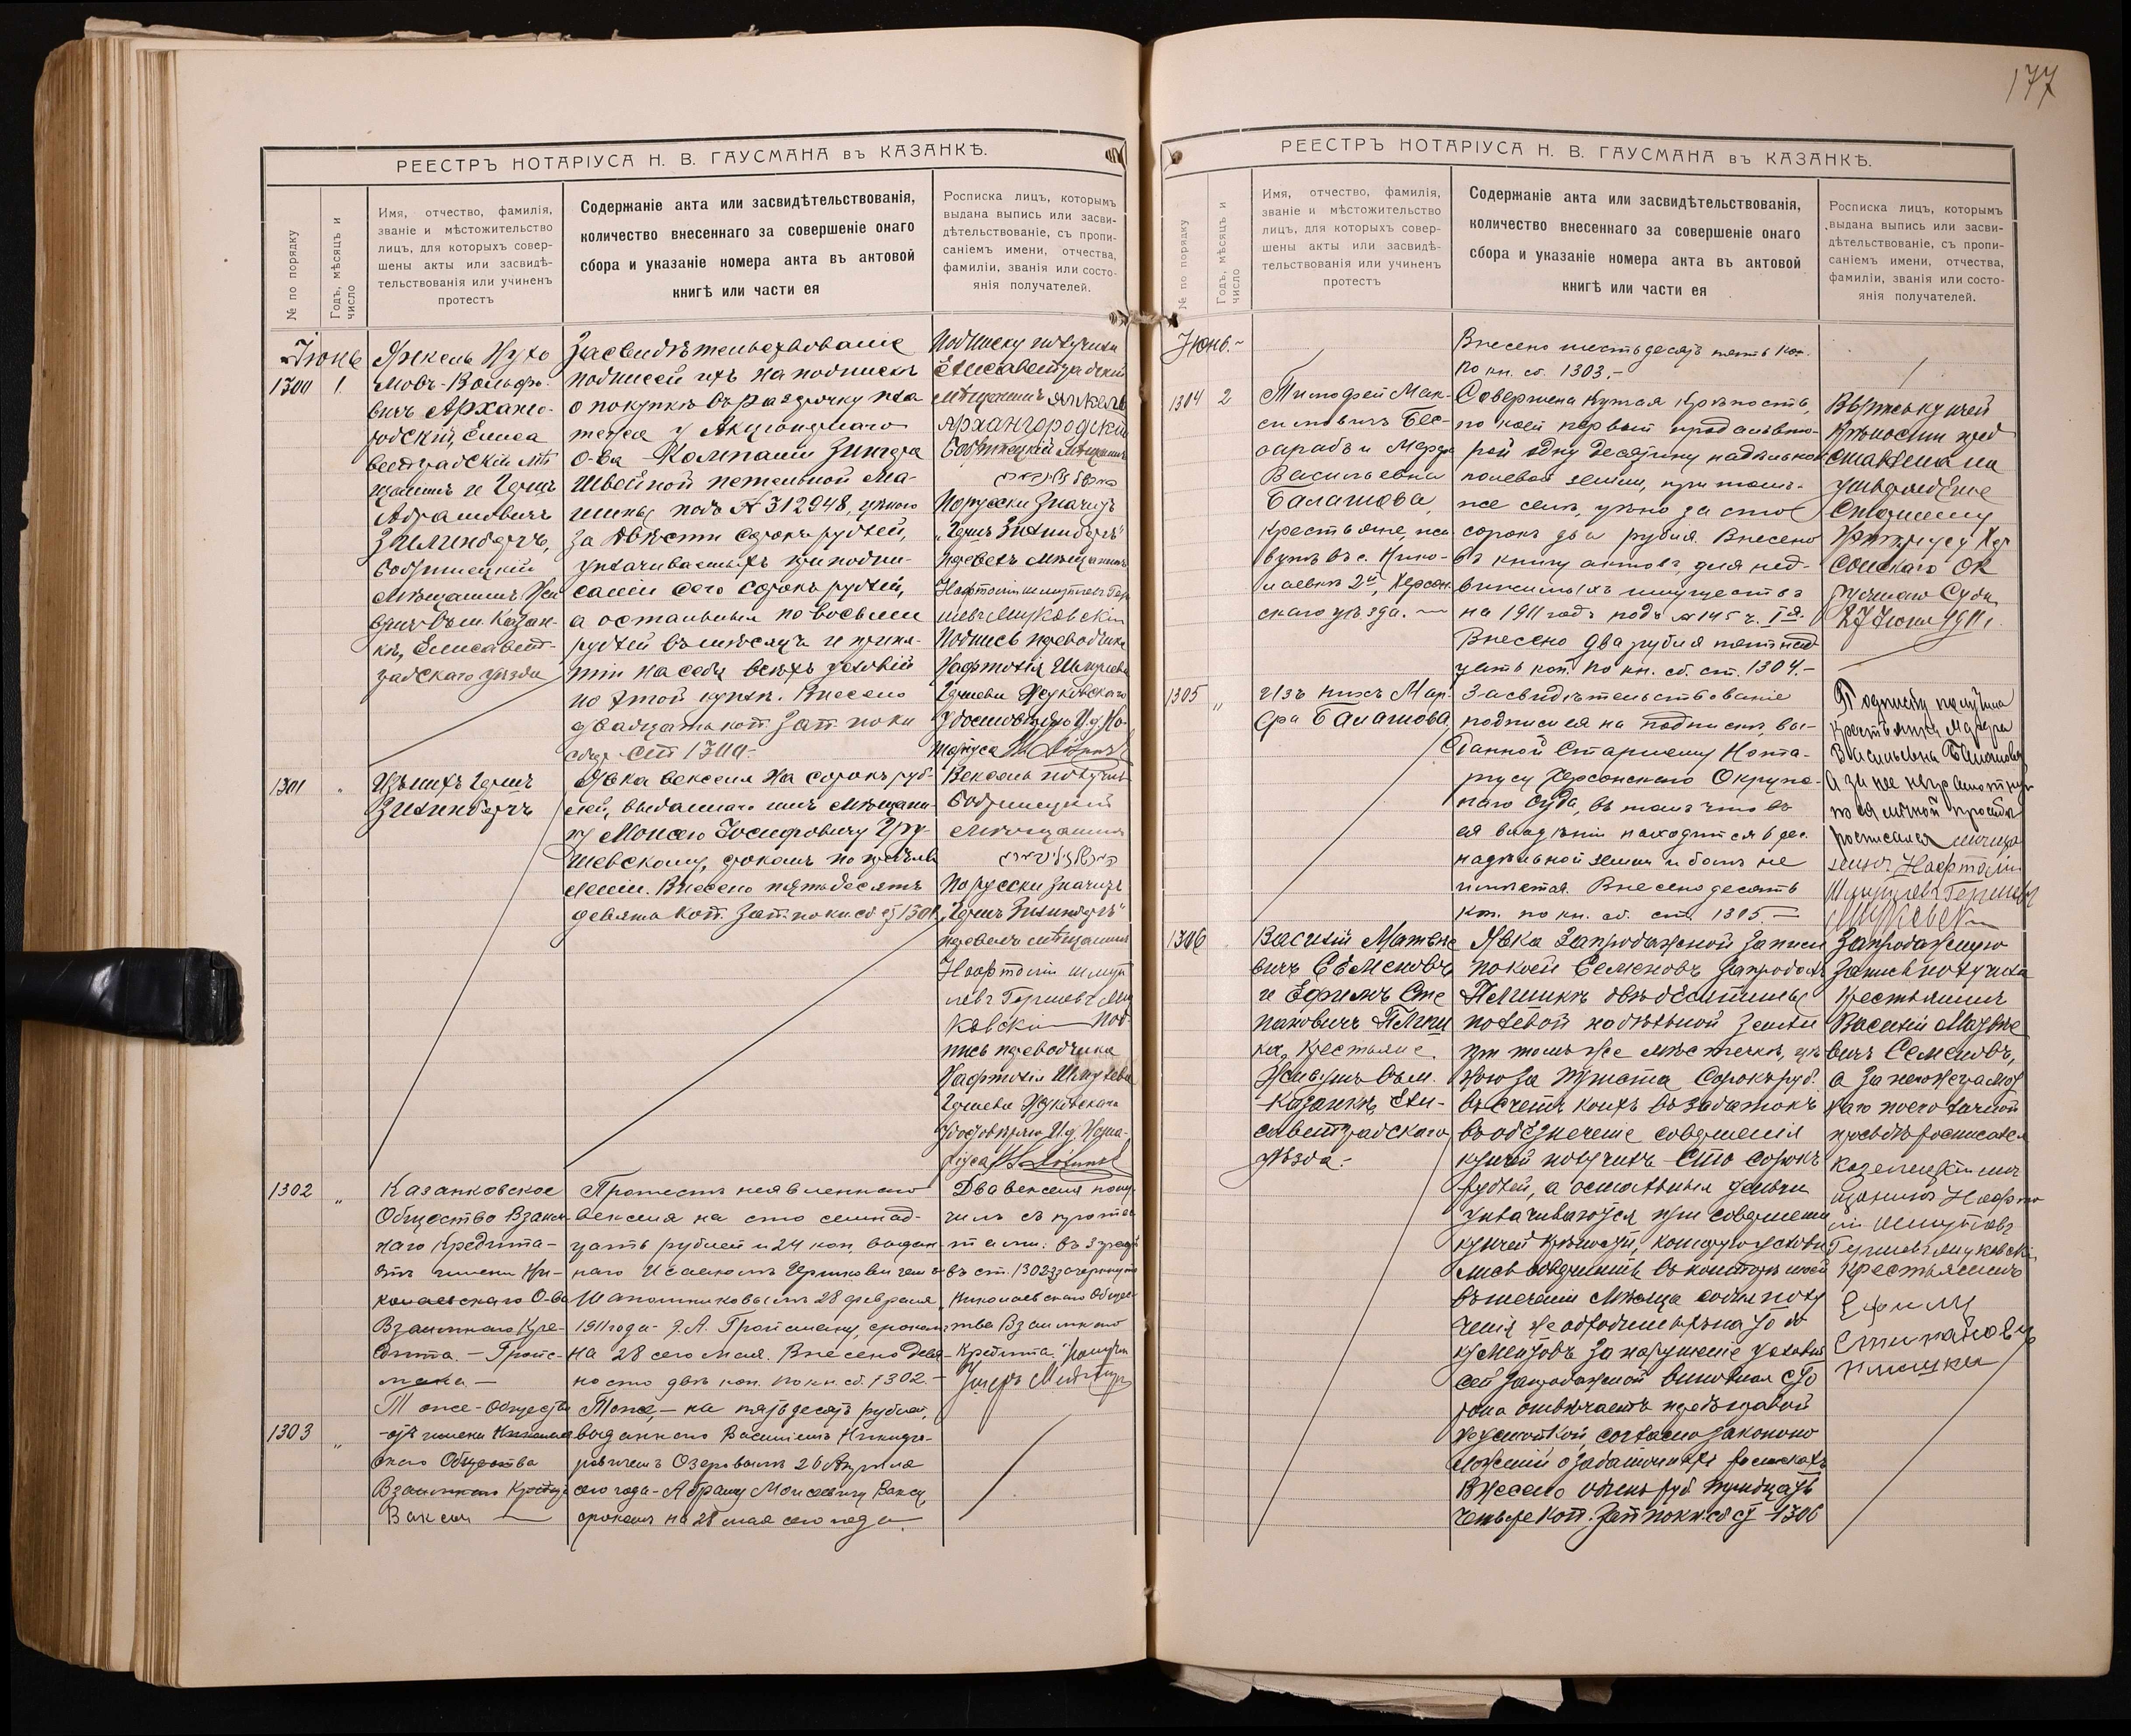 РЕЕСТРЪ НОТАРІУСА Н. В. ГАУСМАНА въ КАЗАНКѢ.
№ по порядку
Годъ, мѣсяцъ и
число
Имя, отчество, фамилія,
званіе и мѣстожительство
лицъ, для которыхъ совер-
шены акты или засвидѣ-
тельствованія или учиненъ
протестъ
Содержаніе акта или засвидѣтельствованія,
количество внесеннаго за совершеніе онаго
сбора и указаніе номера акта въ актовой
книгѣ или части ея
Росписка лицъ, которымъ
выдана выпись или засви-
дѣтельствованіе, съ пропи-
саніемъ имени, отчества,
фамиліи, званія или состо-
янія получателей.
Іюнь
1300 1.
Янкель Нухи
мовъ-Вольфо-
вичъ Арханго-
родскій, Елиса
ветградскій мѣ
щанинъ и Герш
Абрамовичъ
Зильбергъ,
Бобринецкій
мѣщанинъ
въ м. Казан-
кѣ, Елисавет-
градскаго уѣзда
Засвидѣтельствованіе
подписей ихъ на подпискѣ
о покупкѣ въ разсрочку пла
тежа у Акціонернаго
О-ва Компаніи Зингера
Швейной петельной ма-
шины подъ № 312948, цѣною
за двѣсти сорокъ рублей,
уплачиваемыхъ при подпи-
саніи сего сорокъ рублей,
а остальныя по восьми
рублей въ мѣсяцъ и приня-
тіи на себя всѣхъ условій
по этой куплѣ. Внесено
двадцать коп. Зап. по кн
сбор. ст 1300.-
Подписку получили
Елисаветградскій
мѣщанинъ Янкель
Архангородскій
Бобринецкій мѣщанинъ
По русски значитъ
перевелъ мѣщанинъ
Нафтоліи Шмулевъ Гер
шевъ Мцковскій
Подпись переводчика
Нафтолія Шмулева
Гершева
удостовѣряю И.д. Но-
таріуса
1301 "
Изъ нихъ Герш
Явка векселя на сорокъ руб-
лей, выданнаго имъ мѣщани-
ну Моисею Іосифовичу Гру-
шевскому, срокомъ по предъяв
леніи. Внесено пятьдесятъ
девять коп. Зап. по кн. сб ст 1301
Вексель получилъ
Бобринецкій
мѣщанинъ
По русски значитъ
перевелъ мѣщанинъ
Нафтоліи Шмул
левъ Гершевъ
Под-
пись переводчика
Нафтолія Шмулева
Гершева
Удостовѣряю И.д. Нота-
ріуса
1302 "
Казанковское
Общество Взаим-
наго Кредита-
отъ имени Ни-
колаевскаго О-ва
Взаимнаго Кре-
дита. - Гройс-
мана. -
Протестъ неявленнаго
векселя на сто семнад-
цать рублей и 24 коп. выдан
наго Исаакомъ
Шапошниковымъ 28 февраля
1911 года - Э.А. Гройсману, срокомъ
на 28 сего мая. Внесено девя-
носто двѣ коп. по кн. сб. 1302.-
Два векселя полу-
чилъ съ протес
тами:
въ ст. 1302 зачеркнуто
Николаевскаго Общес
тва Взаимнаго
Кредита.
1303 "
Тоже - Общество
-отъ имени
скаго Общества
Взаимнаго
Ваксъ
Тоже, - на пятьдесятъ рублей,
выданнаго Василіемъ Никифо-
ровичемъ Озеровымъ 26 Апрѣля
сего года - Абраму Моисеевичу Ваксу,
срокомъ на 28 мая сего года.
177
РЕЕСТРЪ НОТАРІУСА Н. В. ГАУСМАНА въ КАЗАНКѢ.
№ по порядку
Годъ, мѣсяцъ и
число
Имя, отчество, фамилія,
званіе и мѣстожительство
лицъ, для которыхъ совер-
шены акты или засвидѣ-
тельствованія или учиненъ
протестъ
Содержаніе акта или засвидѣтельствованія,
количество внесеннаго за совершеніе онаго
сбора и указаніе номера акта въ актовой
книгѣ или части ея
Росписка лицъ, которымъ
выдана выпись или засви-
дѣтельствованіе, съ пропи-
саніемъ имени, отчества,
фамиліи, званія или состо-
янія получателей.
Іюнь.
Внесено шестьдесятъ пять коп.
по кн. сб. 1303.-
1304 2
Тимофей Мак-
симовичъ Бес-
сарабъ и Марфа
Васильевна
Балашова,
крестьяне, жи
вутъ въ с. Нико-
лаевкѣ 2й, Херсон-
скаго уѣзда. -
Совершена купчая крѣпость,
по коей первый продалъ вто-
рой одну десятину надѣльной
полевой земли, при томъ-
же селѣ, цѣною за сто
сорокъ два рубля. Внесено
въ книгу актовъ, для нед-
вижимыхъ имуществъ
на 1911 годъ подъ № 145 ч. Iя.
Внесено два рубля пятнад
цать коп. по кн. сб. ст. 1304.-
Выпись купчей
крѣпости пред
ставлена на
утвержденіе
Старшему
Нотаріусу Хер
сонскаго Ок
ружнаго Суда
27 Іюня 1911 г.
1305 "
Изъ нихъ Мар-
фа Балашова.
Засвидѣтельствованіе
подписи ея на подпискѣ, вы-
данной Старшему Нота-
ріусу Херсонскаго Окруж-
наго Суда, въ томъ что въ
ея владѣніи находится 6 дес.
надѣльной земли и болѣе не
имѣется. Внесено десять
коп. по кн. сб. ст. 1305.-
Подписку получила
крестьянка Марфа
Васильевна Балашова
А за нее неграмотную
по ея личной просьбѣ
росписался мѣща
нинъ Нафтоліи
Шмулевъ Гершевъ
1306
Василій Матвѣе
вичъ Семеновъ
и Ефимъ Сте
пановичъ
ка, крестьяне.
Живутъ въ м.
Казанкѣ, Ели-
саветградскаго
уѣзда.-
Явка Запродажной Записи
по коей Семеновъ запродалъ
двѣ десятины
полевой надѣльной земли
при томъ же мѣстечкѣ, цѣ
ною за триста сорокъ руб.
въ счетъ коихъ въ задатокъ
въ обезпеченіе совершенія
купчей получилъ сто сорокъ
рублей, а остальныя деньги
уплачиваются при совершеніи
купчей крѣпости, которую условли
лись совершить въ конторѣ моей
въ теченіи мѣсяца со дня полу
ченія необходимыхъ на то до
кументовъ. За нарушеніе условій
сей запродажной виновная сто
рона отвѣчаетъ предъ правой
неустойкой согласно законопо
ложеній о задаточныхъ роспискахъ
Внесено одинъ руб тридцать
четыре коп. Зап по кн. сб ст 1306
Запродажную
запись получилъ
крестьянинъ
Василій Матвѣе
вичъ Семеновъ,
а за него неграмот
наго по его личной
просьбѣ росписался
щанинъ Нафто
ліи Шмулевъ
крестьянинъ
Ефимъ
Степановъ